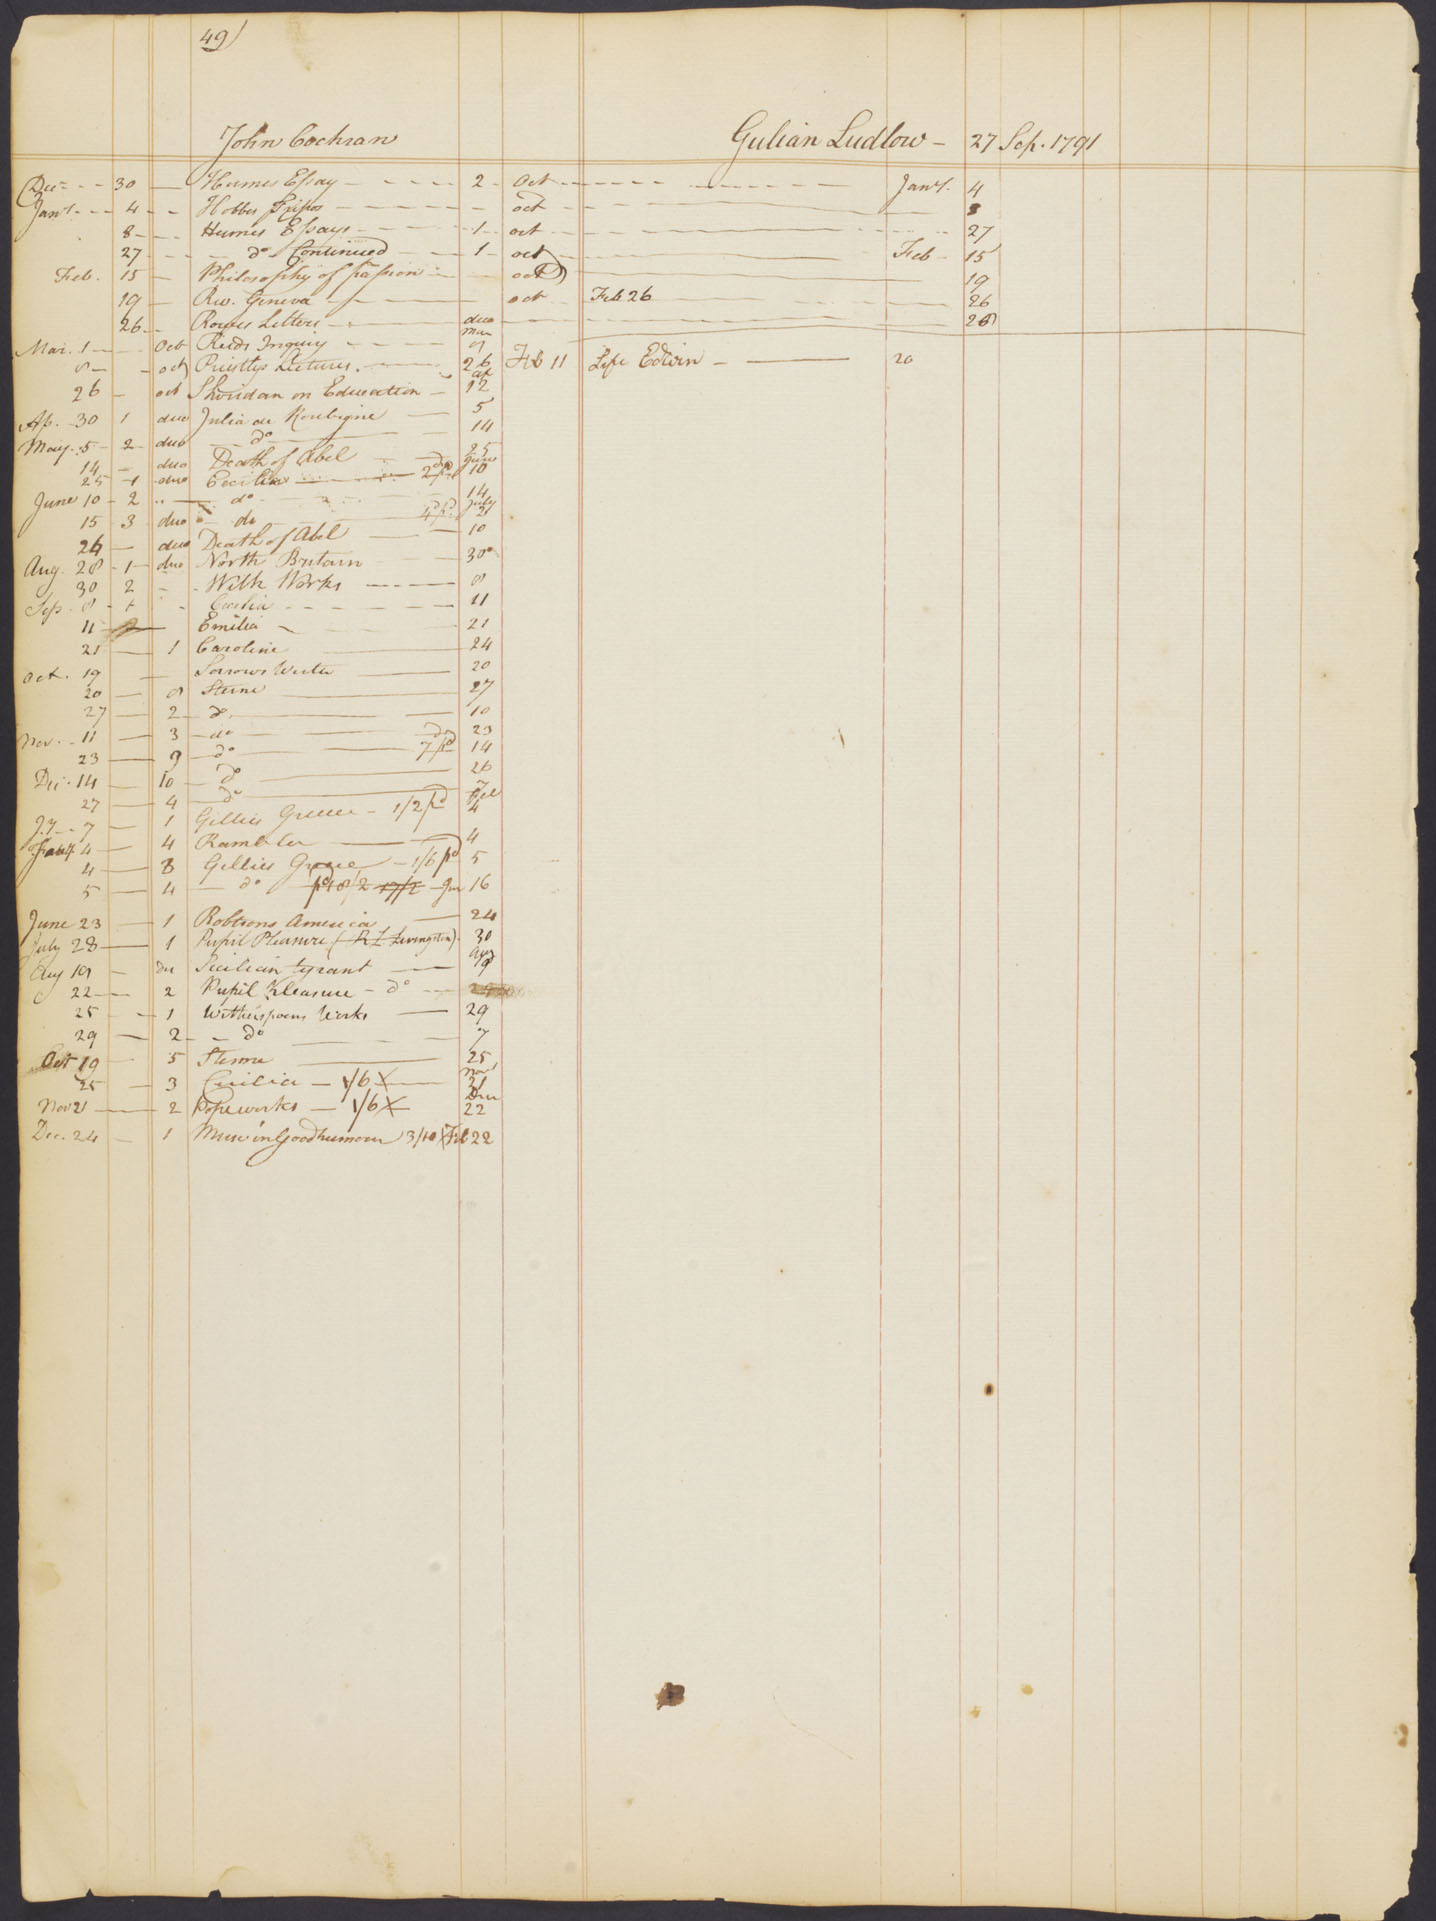 49)
John Cochran
Gulian Ludlow - 27 Sep. 1791
Decr - - 30 — Humes Essay - - - - 2 - Oct - - - - - Jany. 4
Jany. - - 4 - - Hobbes Tripos - - - - oct - - 8
8 - - Humes Essays - - - 1 - oct - - 27
27 - - do Continued - 1 - oct Feb - 15
Feb. 15 — Philosophy of passion - oct 19
19 — Rev. Geneva - oct - Feb 26 26
26 - Rowes Letters - duo 28
Mar. 1 - Oct Reids Inquiry - - - Mar 8
8 - - oct Priestlys Lectures. 26 Feb 11 Life Edwin - — 20
26 - oct Sheridan on Education - ap 12
Ap. 30 1 duo Julia de Roubigne — 5
May. 5 - 2 - duo — do — 14
14 - duo Death of Abel - 25
25 - 1 duo Cecilia — 2/ pd June 10
June 10 - 2 " — do 14
15 - 3 duo - do 4/ pd July 21
26 — duo Death of Abel — 10
Aug. 28 - 1 - duo North Britain — 30
30 2 - - Wilk Works - - - 8
Sep. 8 - Cecilia - - - 11
11 Emilia - 21
21 — 1 Caroline — 24
Oct. 19 — Sorrows Werter — 20
20 — 8 Sterne — 27
27 — 2 - do — 10
Nov. - 11 — 3 - do 23
23 — 9 - do — 7/ pd 14
Decr. 14 — 10 - do 26
27 — 4 - do Feb
J.y - 7 — 1 Gillies Greece - 1/2 pd 4
4 — 4 Rambler — 4
4 — 3 Gillies Greece - 1/6 pd 5
5 — 4 — do pd 18/2 17/2 Jun 16
June 23 — 1 Robtsons America — 24
July 28 — 1 Pupil Pleasure (R L Livingston). 30
Aug 19 - Sicilian tyrant — Aug 19
22 — 2 Pupil Pleasure - do
25 - - 1 Witherspoons Works — 29
29 — 2 - - do — 7
Oct 19 — 5 Sterne — 25
25 — 3 Cecilia — 1/6 X Nov 21
Nov 21 — 2 Pope works — 1/6 X Dec 22
Dec. 24 — 1 Muse in Good humour 3/10 X Feb 22